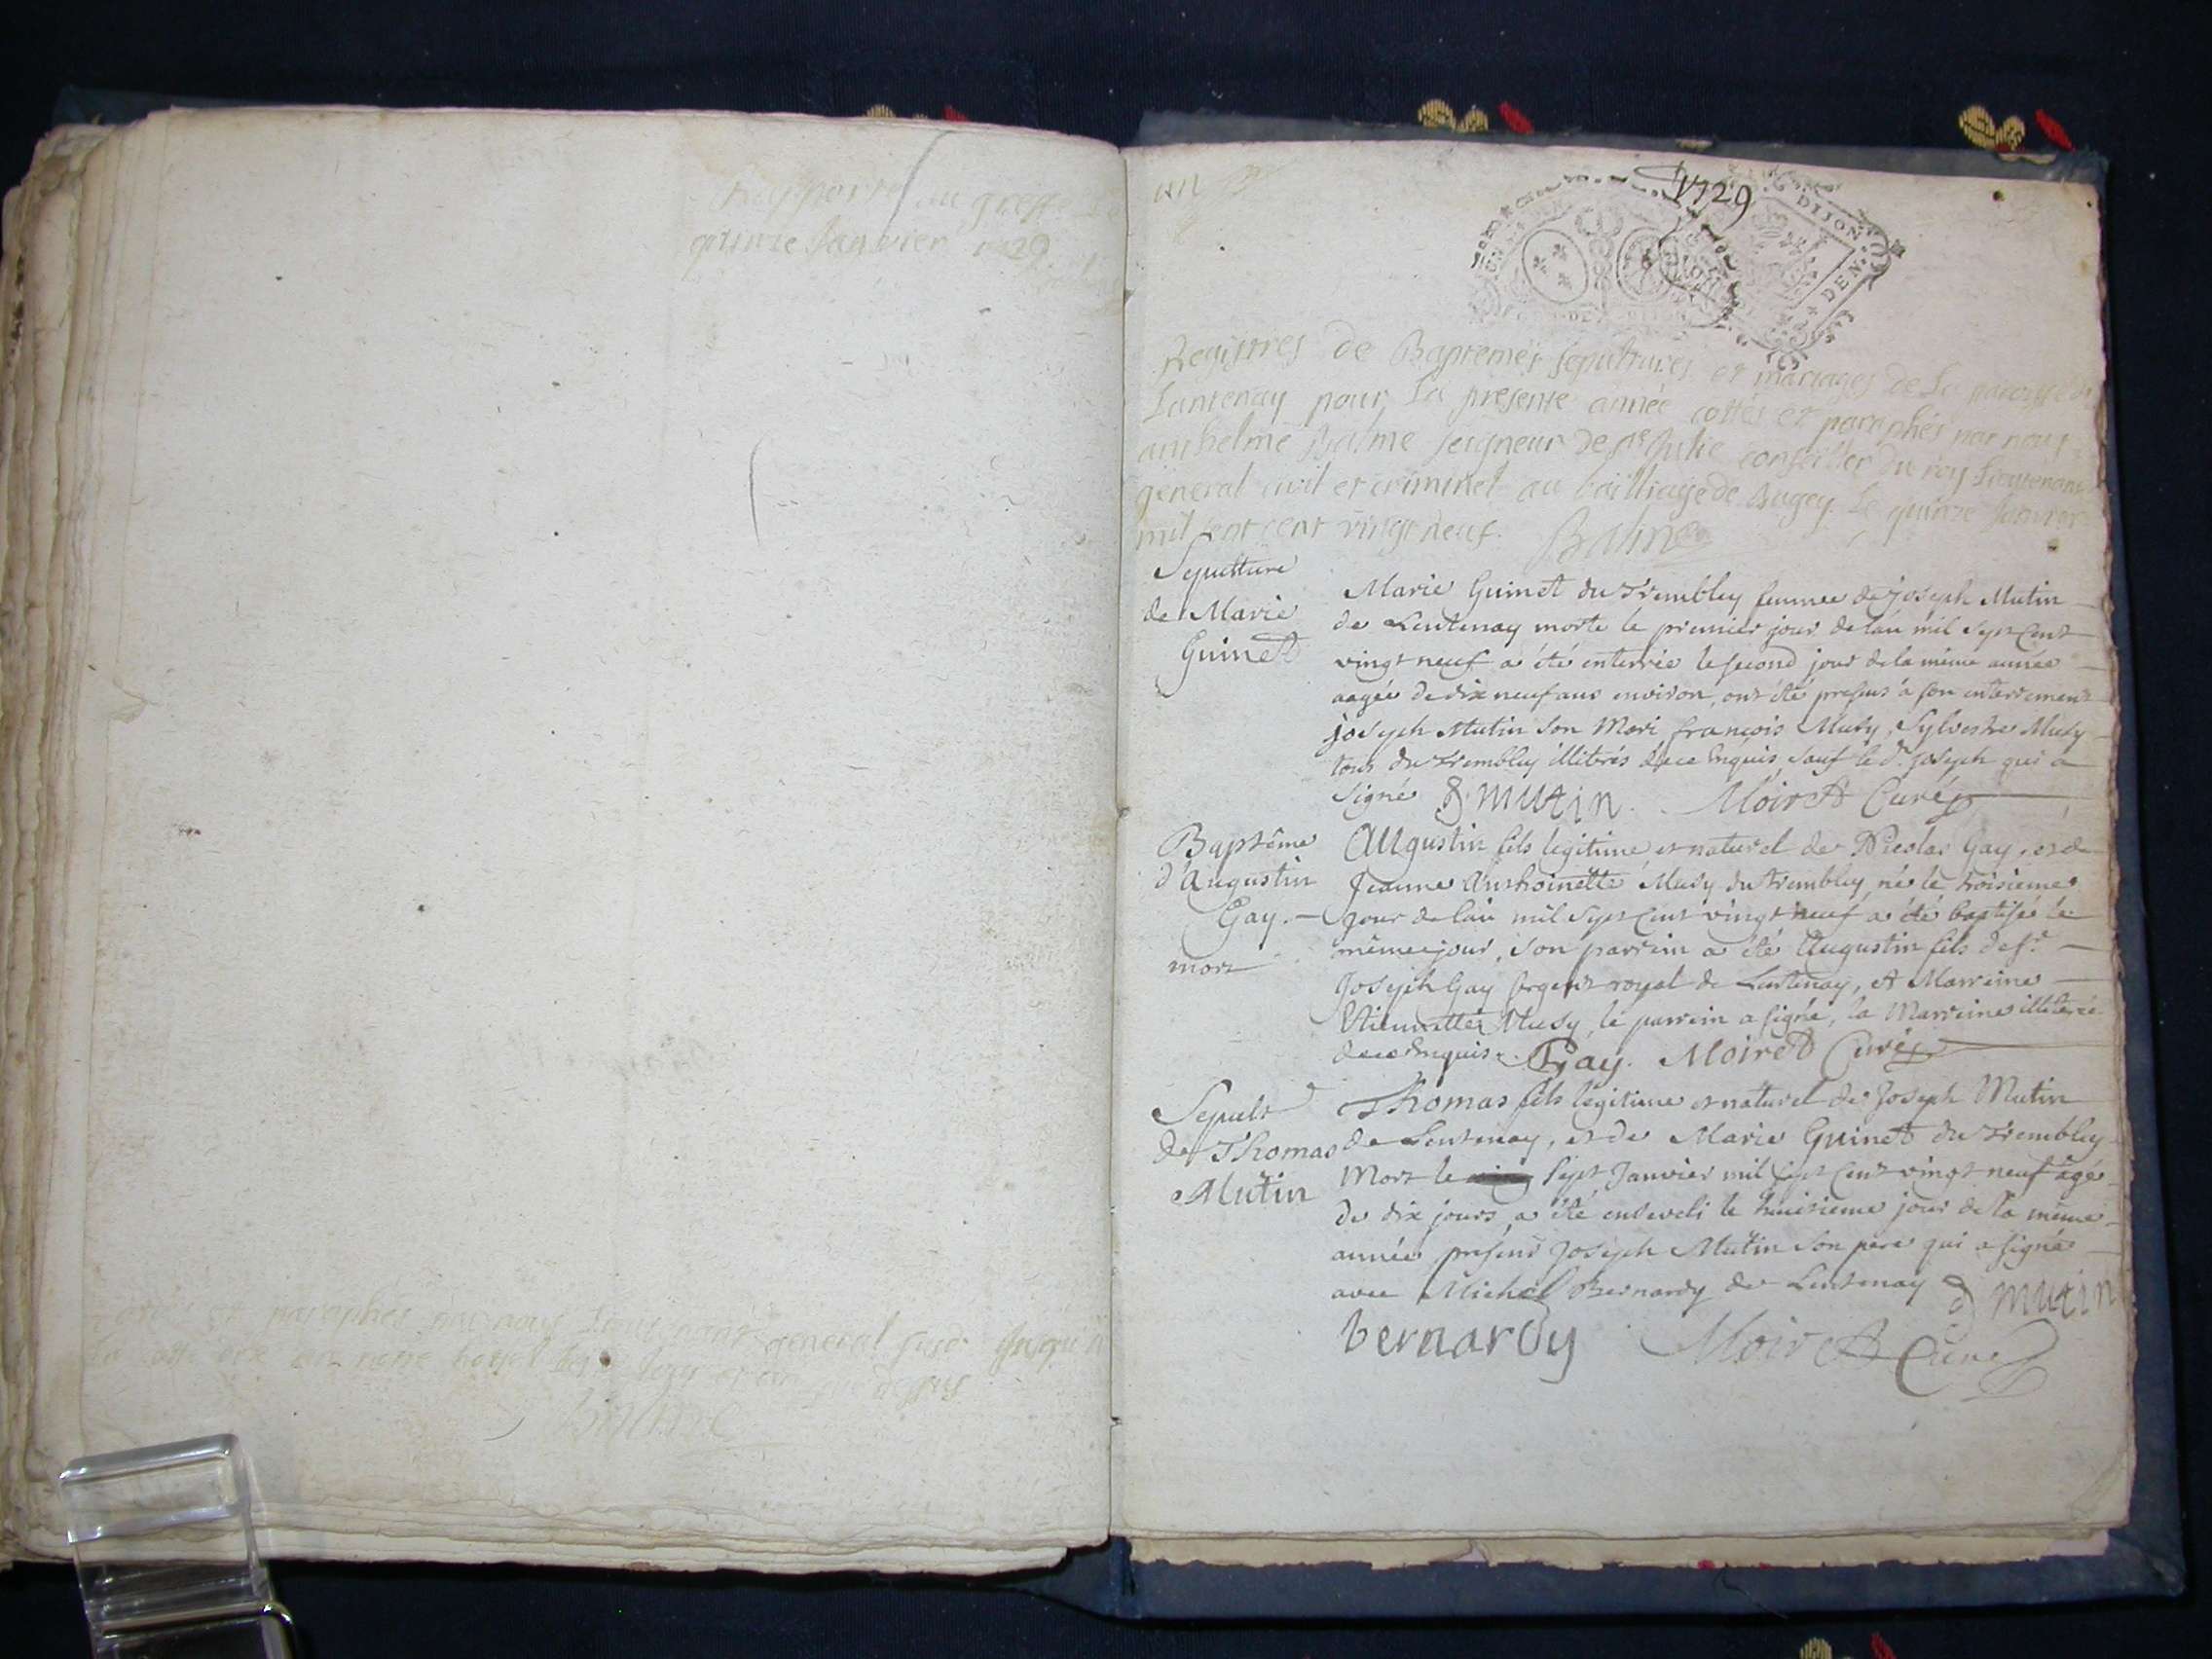 Rapporté au greffe le
quinze Janvier 1729.
cottés et paraphés par nous Lieutenant general jusqu'a
Balme
un
1729
DIJON
DEN
Registres de Baptemes sepultures et mariages de La paroisse de
Lantenay pour La presente année cottés et paraphés par nous
anthelme Balme seigneur de Ste Julie conseiller du roy Lieutenant
general civil et criminel au bailliage de Bugey Le quinze Janvier
mil sept cent vingt neuf. Balme
Sepulture
de Marie
Guinet
Marie Guinet du Tremblay femme de joseph Mutin
de Lentenay morte le premier jour de lan mil sept cent
vingt neuf a été enterrée le second jour de la même année
aagée de dix neuf ans environ, ont été presens a son enterrement
joseph Mutin son Mari françois Musy, Sylvestre Musy
tous du Tremblay illiterés de ce Enquis, sauf le d. joseph qui a
signé J mutin. Moiret Curé
Baptême
d'Augustin
Gay.
mort
Augustin fils legitime et naturel de Nicolas Gay, et de
Jeanne Anthoinette Musy du tremblay, né le troisieme
jour de lan mil Sept Cent vingt neuf a été baptisé le
même jour, son parrein a été Augustin fils de Sr.
Joseph Gay sergent royal de Lentenay, et Marreine
Etiennette Musy, le parrein a signé, la Marreine illiterée
de ce Enquise. Gay. Moiret Curé
Sepult
de Thomas
Mutin
Thomas fils legitime et naturel de Joseph Mutin
de Lentenay, et de Marie Guinet du Tremblay
Mort le Sept Janvier mil sept cent vingt neuf âgé
de dix jours, a été enseveli le huitieme jour de la même
année present Joseph Mutin son pere qui a signé
avec Michel Bernardy de Lentenay J mutin
bernardy Moiret Curé